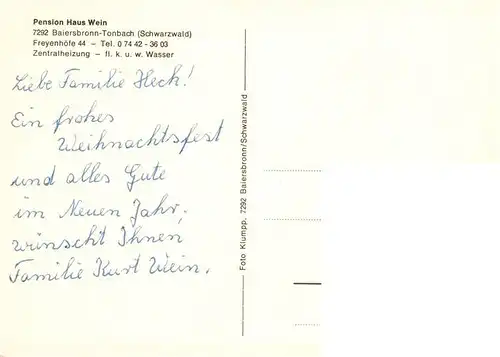 Pension Haus Wein
7292 Baiersbronn-Tonbach (Schwarzwald)
Freyenhöfe 44 – Tel. 0 74 42 - 36 03
Zentralheizung – fl. k. u. w. Wasser
Liebe Familie Heck!
Ein frohes
Weihnachtsfest
und alles Gute
im Neuen Jahr,
wünscht Ihnen
Familie Kurt Wein.
Foto Klumpp, 7292 Baiersbronn/Schwarzwald